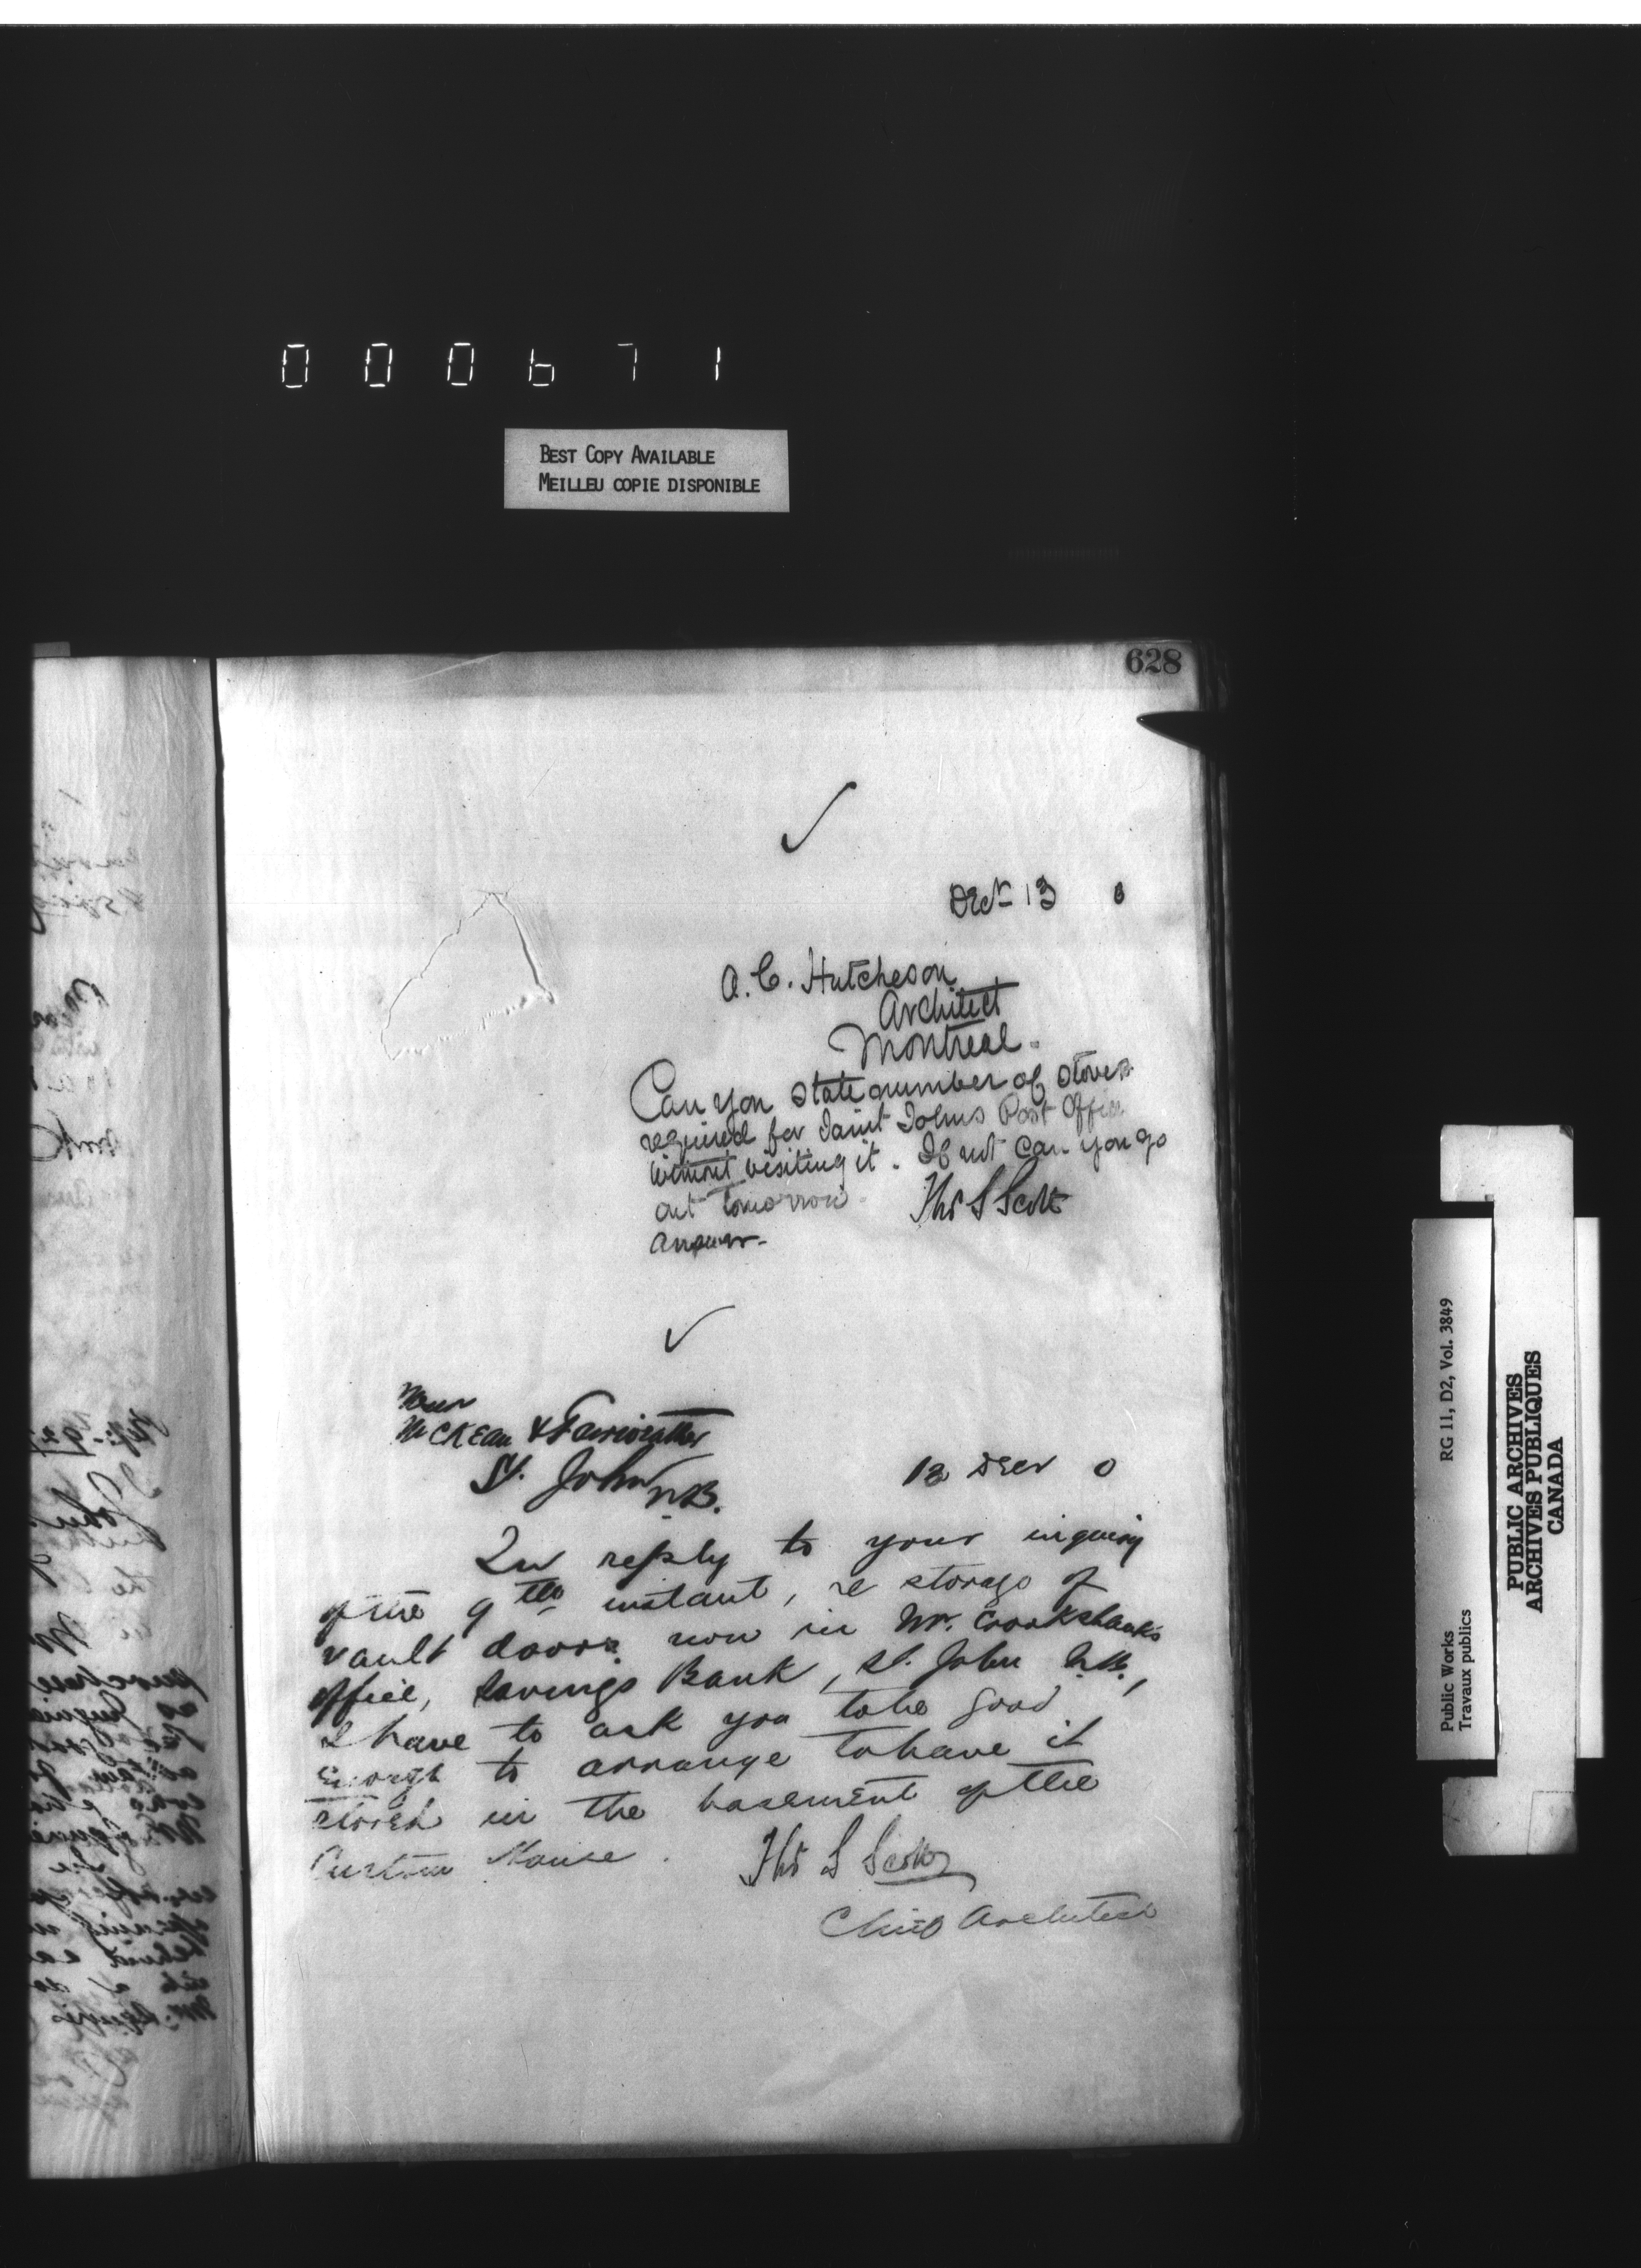 000671
BEST COPY AVAILABLE
MEILLEU COPIE DISPONIBLE
628
Decr 13 0
A. C. Hutcheson
Architect
Montreal.
Can you state number of stoves
required for Saint Johns Post Office
without visiting it. If not can you go
out tomorrow.
Thos S Scott
Answer.
Messrs
McKean & Fairweather
St. John N.B.
13 Decr 0
In reply to your inquiry
of the 9th instant, re storage of
vault doors now in Mr. Crookshank's
office, Savings Bank, St. John N.B.,
I have to ask you to be good
enough to arrange to have it
stored in the basement of the
Custom House.
Thos S Scott
Chief Architect
Public Works
Travaux publics
RG 11, D2, Vol. 3849
PUBLIC ARCHIVES
ARCHIVES PUBLIQUES
CANADA